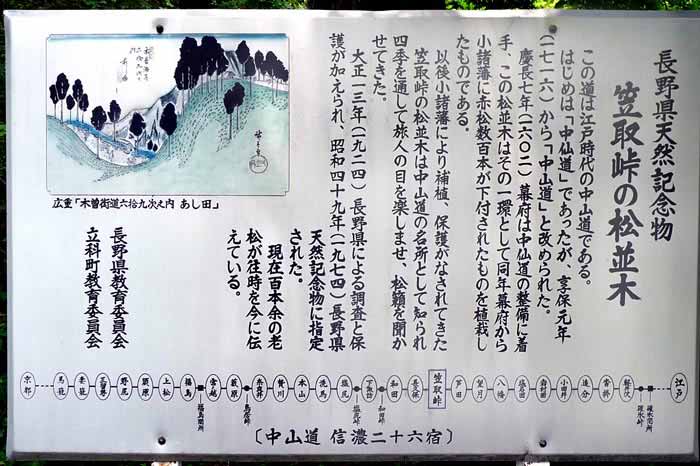 長野県天然記念物
笠取峠の松並木
この道は江戸時代の中山道である。
はじめは「中仙道」であったが、享保元年
(一七一六)から「中山道」と改められた。
慶長七年(一六〇二)幕府は中仙道の整備に着
手、この松並木はその一環として同年幕府から
小諸藩に赤松数百本が下付されたものを植栽し
たものである。
以後小諸藩により補植、保護がなされてきた
笠取峠の松並木は中山道の名所として知られ
四季を通して旅人の目を楽しませ、松籟を聞か
せてきた。
大正一三年(一九二四)長野県による調査と保
護が加えられ、昭和四十九年(一九七四)長野県
天然記念物に指定
された。
現在百本余の老
松が往時を今に伝
えている。
長野県教育委員会
立科町教育委員会
広重「木曽街道六拾九次之内 あし田」
京都
馬籠
妻籠
三留野
野尻
須原
上松
福島
福島関所
宮ノ越
薮原
鳥居峠
奈良井
贄川
本山
洗馬
塩尻
塩尻峠
下諏訪
和田峠
和田
長久保
笠取峠
芦田
望月
八幡
塩名田
岩村田
小田井
追分
沓掛
軽井沢
碓氷峠
碓氷関所
江戸
〔中山道 信濃二十六宿〕